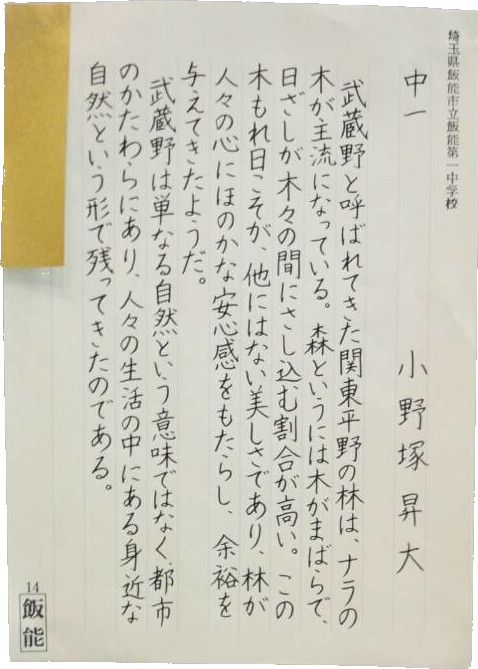 埼玉県飯能市立飯能第一中学校
中一　小野塚昇大
武蔵野と呼ばれてきた関東平野の林は、ナラの
木が主流になっている。森というには木がまばらで、
日ざしが木々の間にさし込む割合が高い。この
木もれ日こそが、他にはない美しさであり、林が
人々の心にほのかな安心感をもたらし、余裕を
与えてきたようだ。
武蔵野は単なる自然という意味ではなく、都市
のかたわらにあり、人々の生活の中にある身近な
自然という形で残ってきたのである。
14
飯能